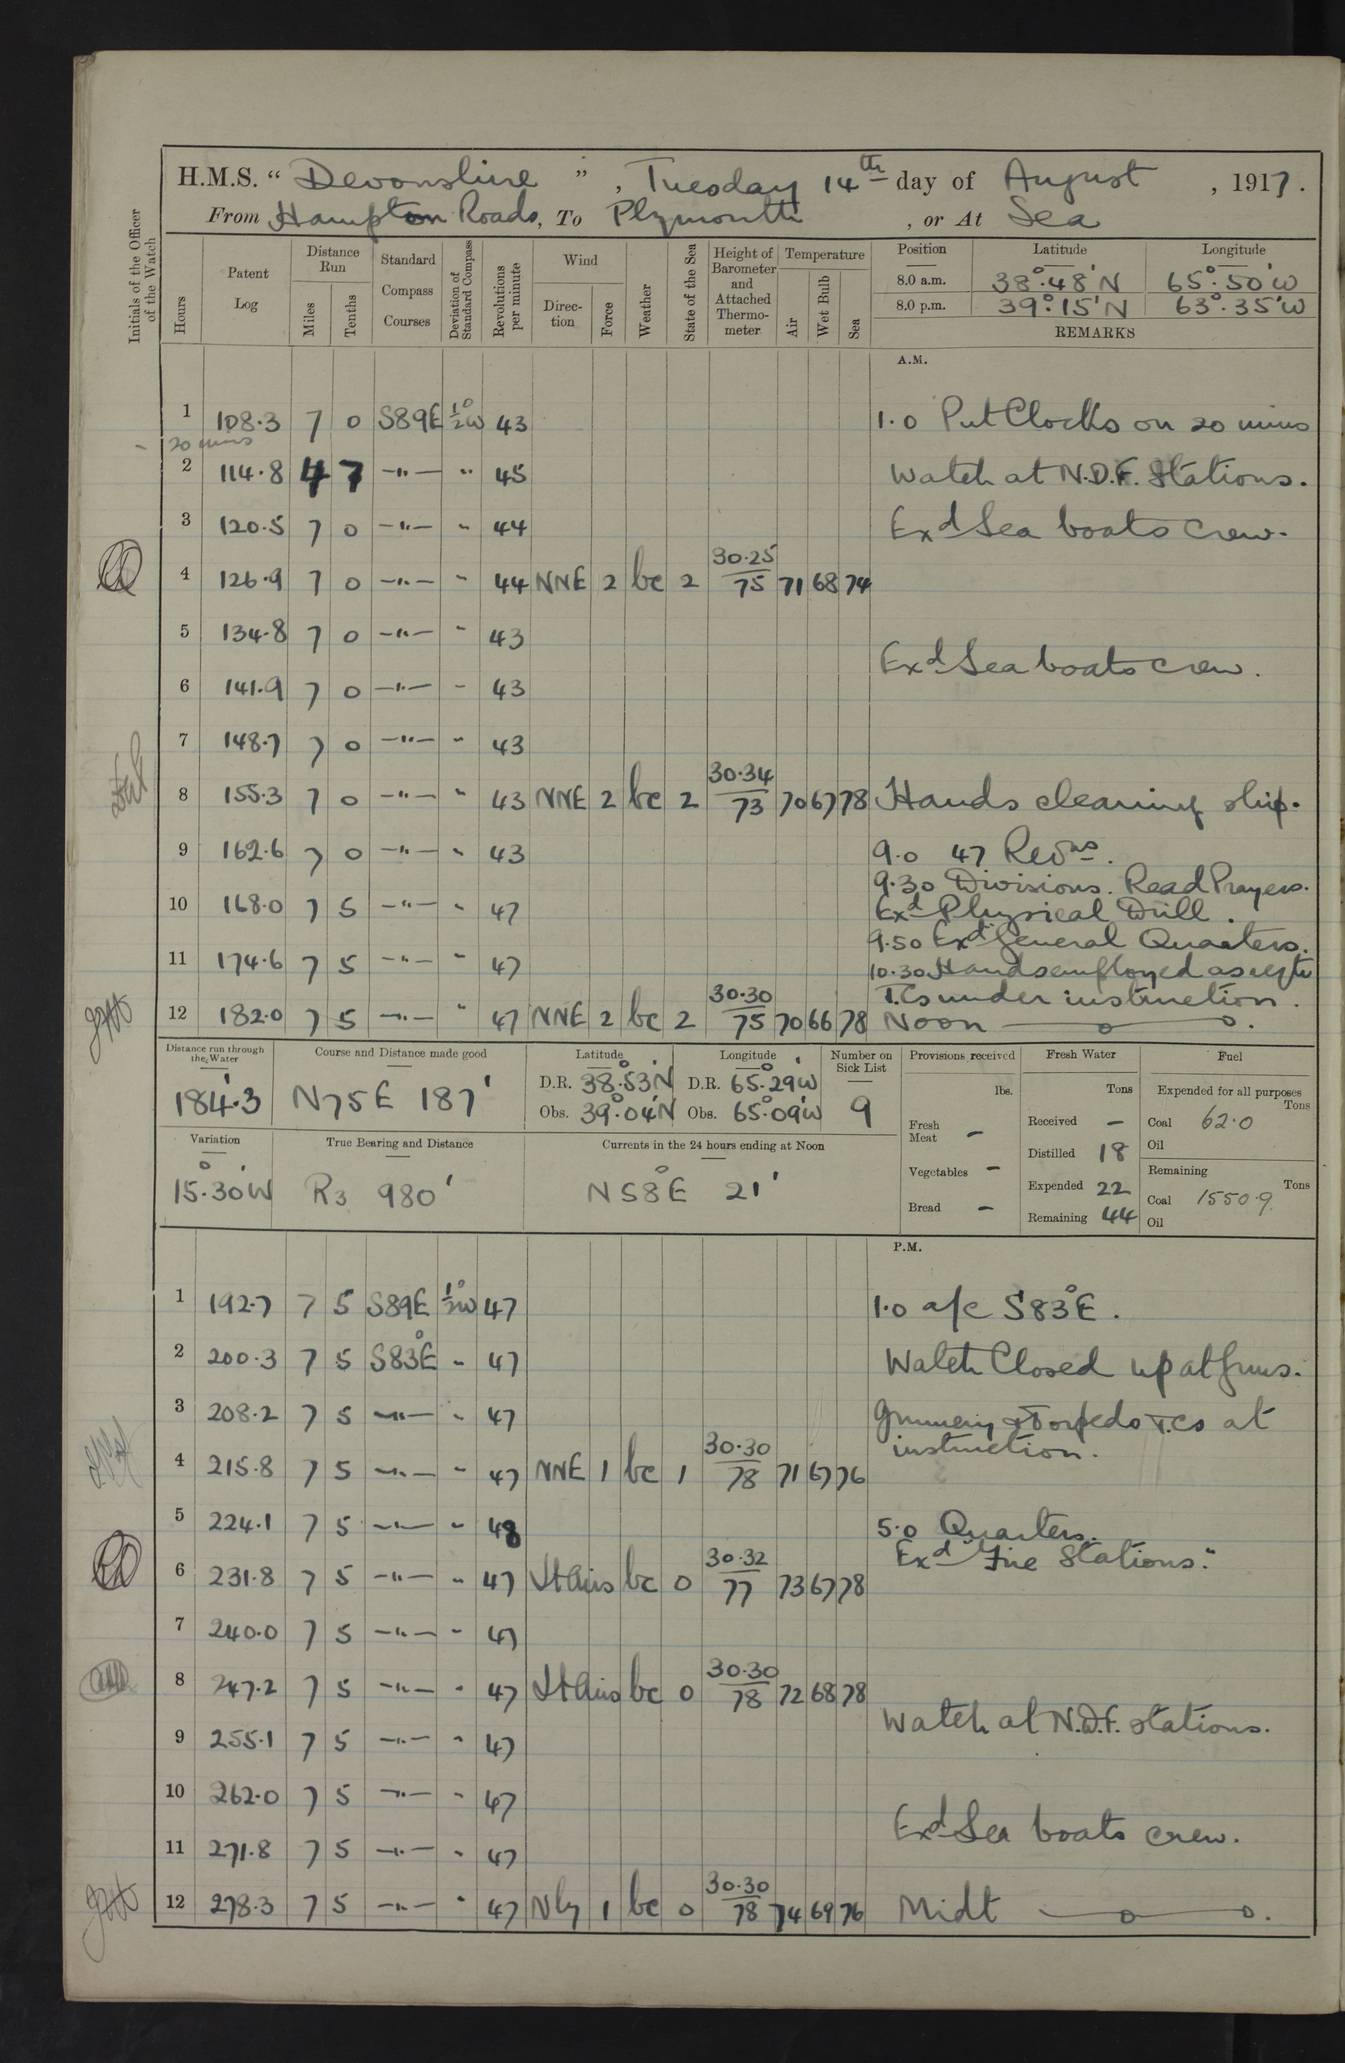 H.M.S. “ Devonshire ” , Tuesday 14th day of August , 1917.
From Hampton Roads, To Plymouth , or At Sea
Initials of the Officer of the Watch
Hours
Patent Log
Distance Run
Miles
Tenths
Standard Compass Courses
Deviation of Standard Compass
Revolutions per minute
Wind
Direction
Force
Weather
State of the Sea
Height of Barometer and Attached Thermometer
Temperature
Air
Wet Bulb
Sea
Position Latitude Longitude
8.0 a.m. 38°.48'N 65°.50'W
8.0 p.m. 39°.15'N 63°.35'W
REMARKS
A.M.
1 108.3 7 0 S89E ½°W 43 1.0 Put Clocks on 20 mins
20 mins
2 114.8 4 7 —"— " 45 Watch at N.D.F. Stations.
3 120.5 7 0 —"— " 44 Exd Sea boats crew.
4 126.9 7 0 —"— " 44 NNE 2 bc 2 30.25/75 71 68 74
5 134.8 7 0 —"— " 43
Exd Sea boats crew.
6 141.9 7 0 —"— " 43
7 148.7 7 0 —"— " 43
8 155.3 7 0 —"— " 43 NNE 2 bc 2 30.34/73 70 67 78 Hands cleaning ship.
9 162.6 7 0 —"— " 43 9.0 47 Revns.
9.30 Divisions. Read Prayers.
10 168.0 7 5 —"— " 47 Exd Physical Drill.
9.50 Exd General Quarters.
11 174.6 7 5 —"— " 47 10.30 Hands employed as reqte
T.Cs under instruction.
12 182.0 7 5 —"— " 47 NNE 2 bc 2 30.30/75 70 66 78 Noon
Distance run through the Water
184'.3
Course and Distance made good
N75E 187'
Latitude
D.R. 38°.53'N
Obs. 39°.04'N
Longitude
D.R. 65°.29'W
Obs. 65°.09'W
Number on Sick List
9
Variation
15°.30'W
True Bearing and Distance
R3 980'
Currents in the 24 hours ending at Noon
N58°E 21'
Provisions received
lbs.
Fresh Meat -
Vegetables -
Bread -
Fresh Water
Tons
Received -
Distilled 18
Expended 22
Remaining 44
Fuel
Expended for all purposes
Tons
Coal 62.0
Oil
Remaining
Tons
Coal 1550.9
Oil
P.M.
1 192.7 7 5 S89E ½°W 47 1.0 a/c S83°E.
2 200.3 7 5 S83°E " 47 Watch Closed up at guns.
3 208.2 7 5 —"— " 47 Gunnery & Torpedo T.Cs at
instruction.
4 215.8 7 5 —"— " 47 NNE 1 bc 1 30.30/78 71 67 76
5 224.1 7 5 —"— " 48 5.0 Quarters.
Exd "Fire Stations."
6 231.8 7 5 —"— " 47 Lt Airs bc 0 30.32/77 73 67 78
7 240.0 7 5 —"— " 47
8 247.2 7 5 —"— " 47 Lt Airs bc 0 30.30/78 72 68 78
Watch at N.D.F. stations.
9 255.1 7 5 —"— " 47
10 262.0 7 5 —"— " 47
Exd Sea boats crew.
11 271.8 7 5 —"— " 47
12 278.3 7 5 —"— " 47 Nly 1 bc 0 30.30/78 74 69 76 Midt